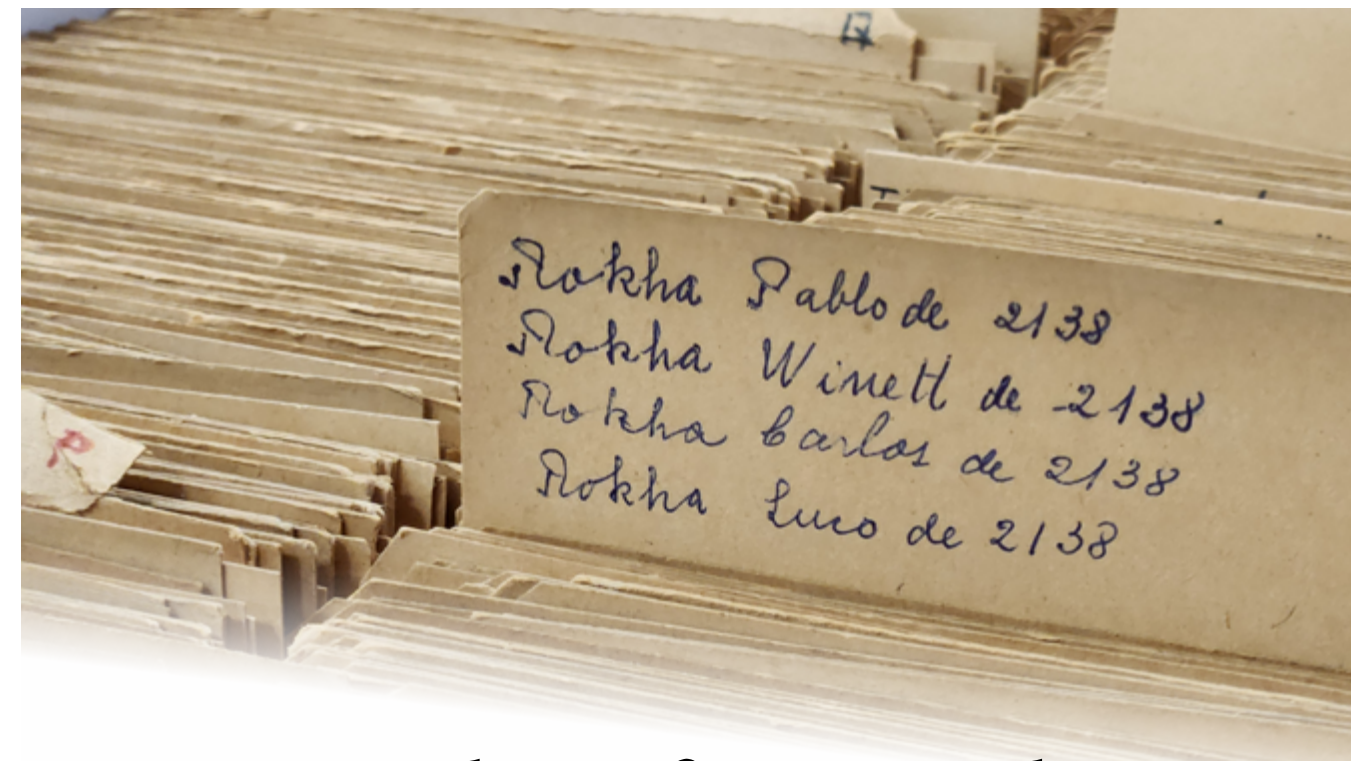 Rokha Pablo de 2138
Rokha Winett de 2138
Rokha Carlos de 2138
Rokha Luco de 2138